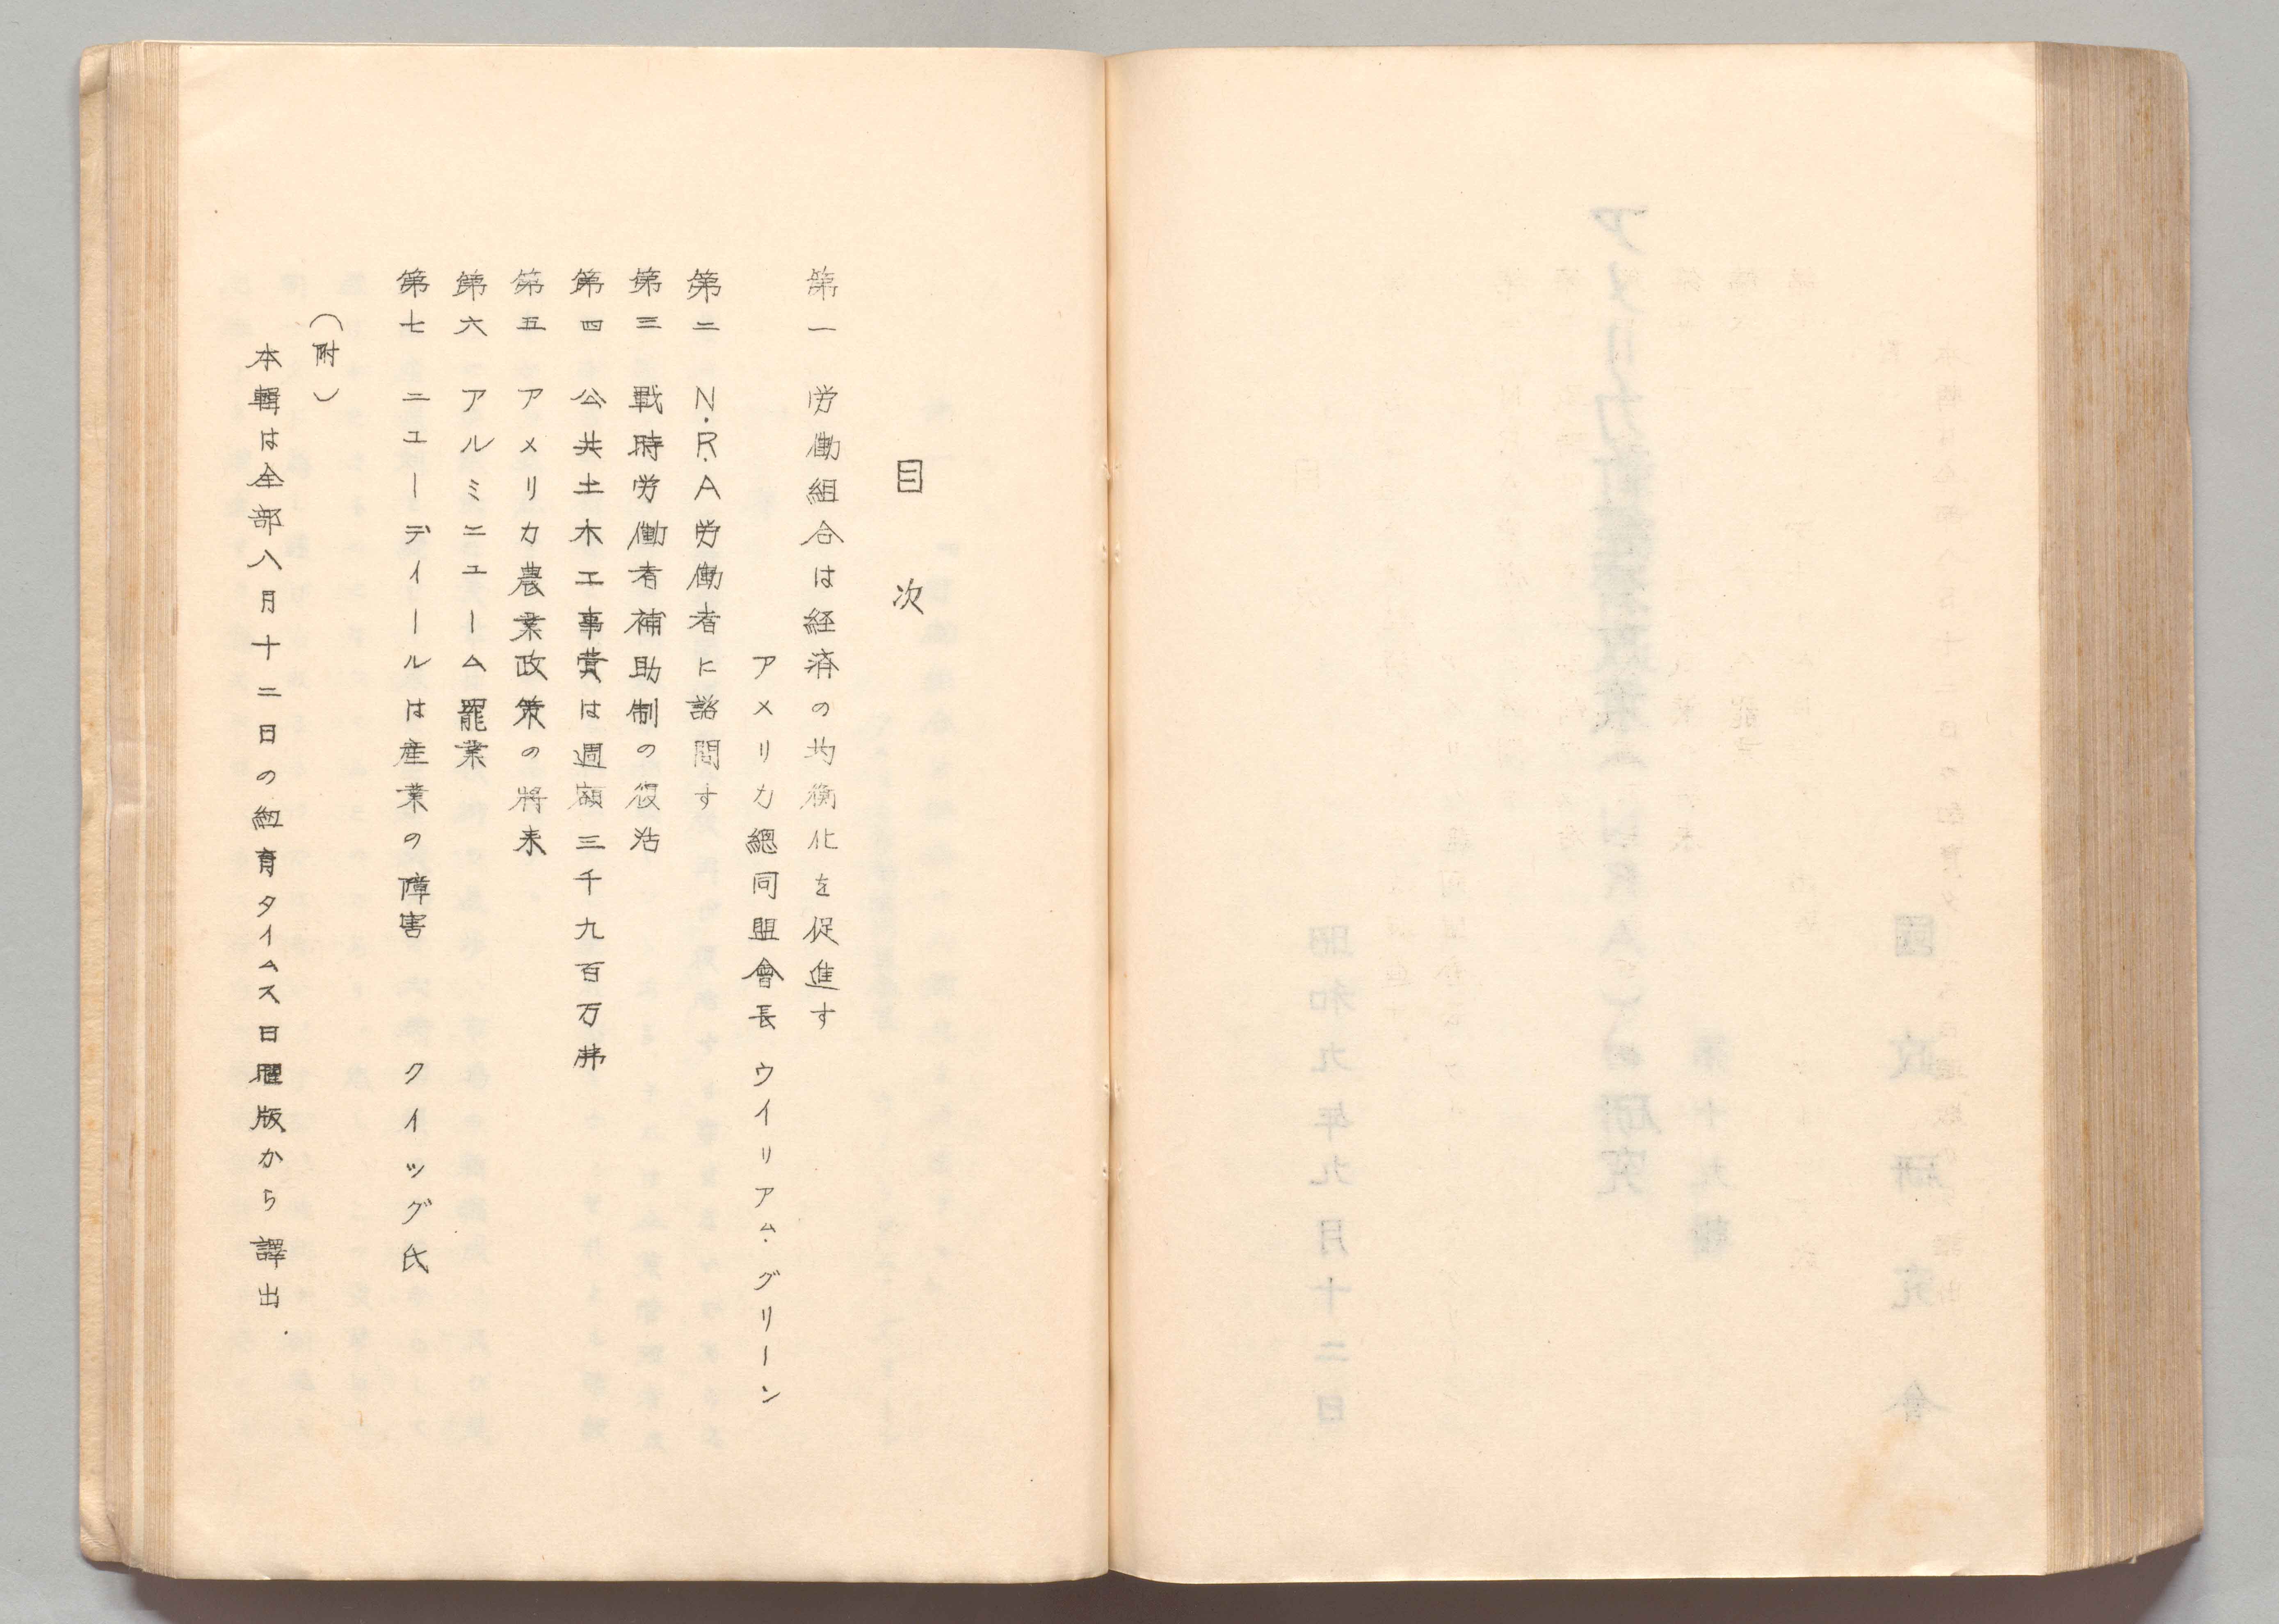 目次
第一 労働組合は経済の均衡化を促進す
アメリカ總同盟會長 ウイリアム・グリーン
第二 N.R.A労働者に諮問す
第三 戰時労働者補助制の復活
第四 公共土木工事費は週額三千九百万弗
第五 アメリカ農業政策の將来
第六 アルミニューム罷業
第七 ニューディールは産業の障害 クイッグ氏
(附)
本輯は全部八月十二日の紐育タイムス日曜版から譯出.